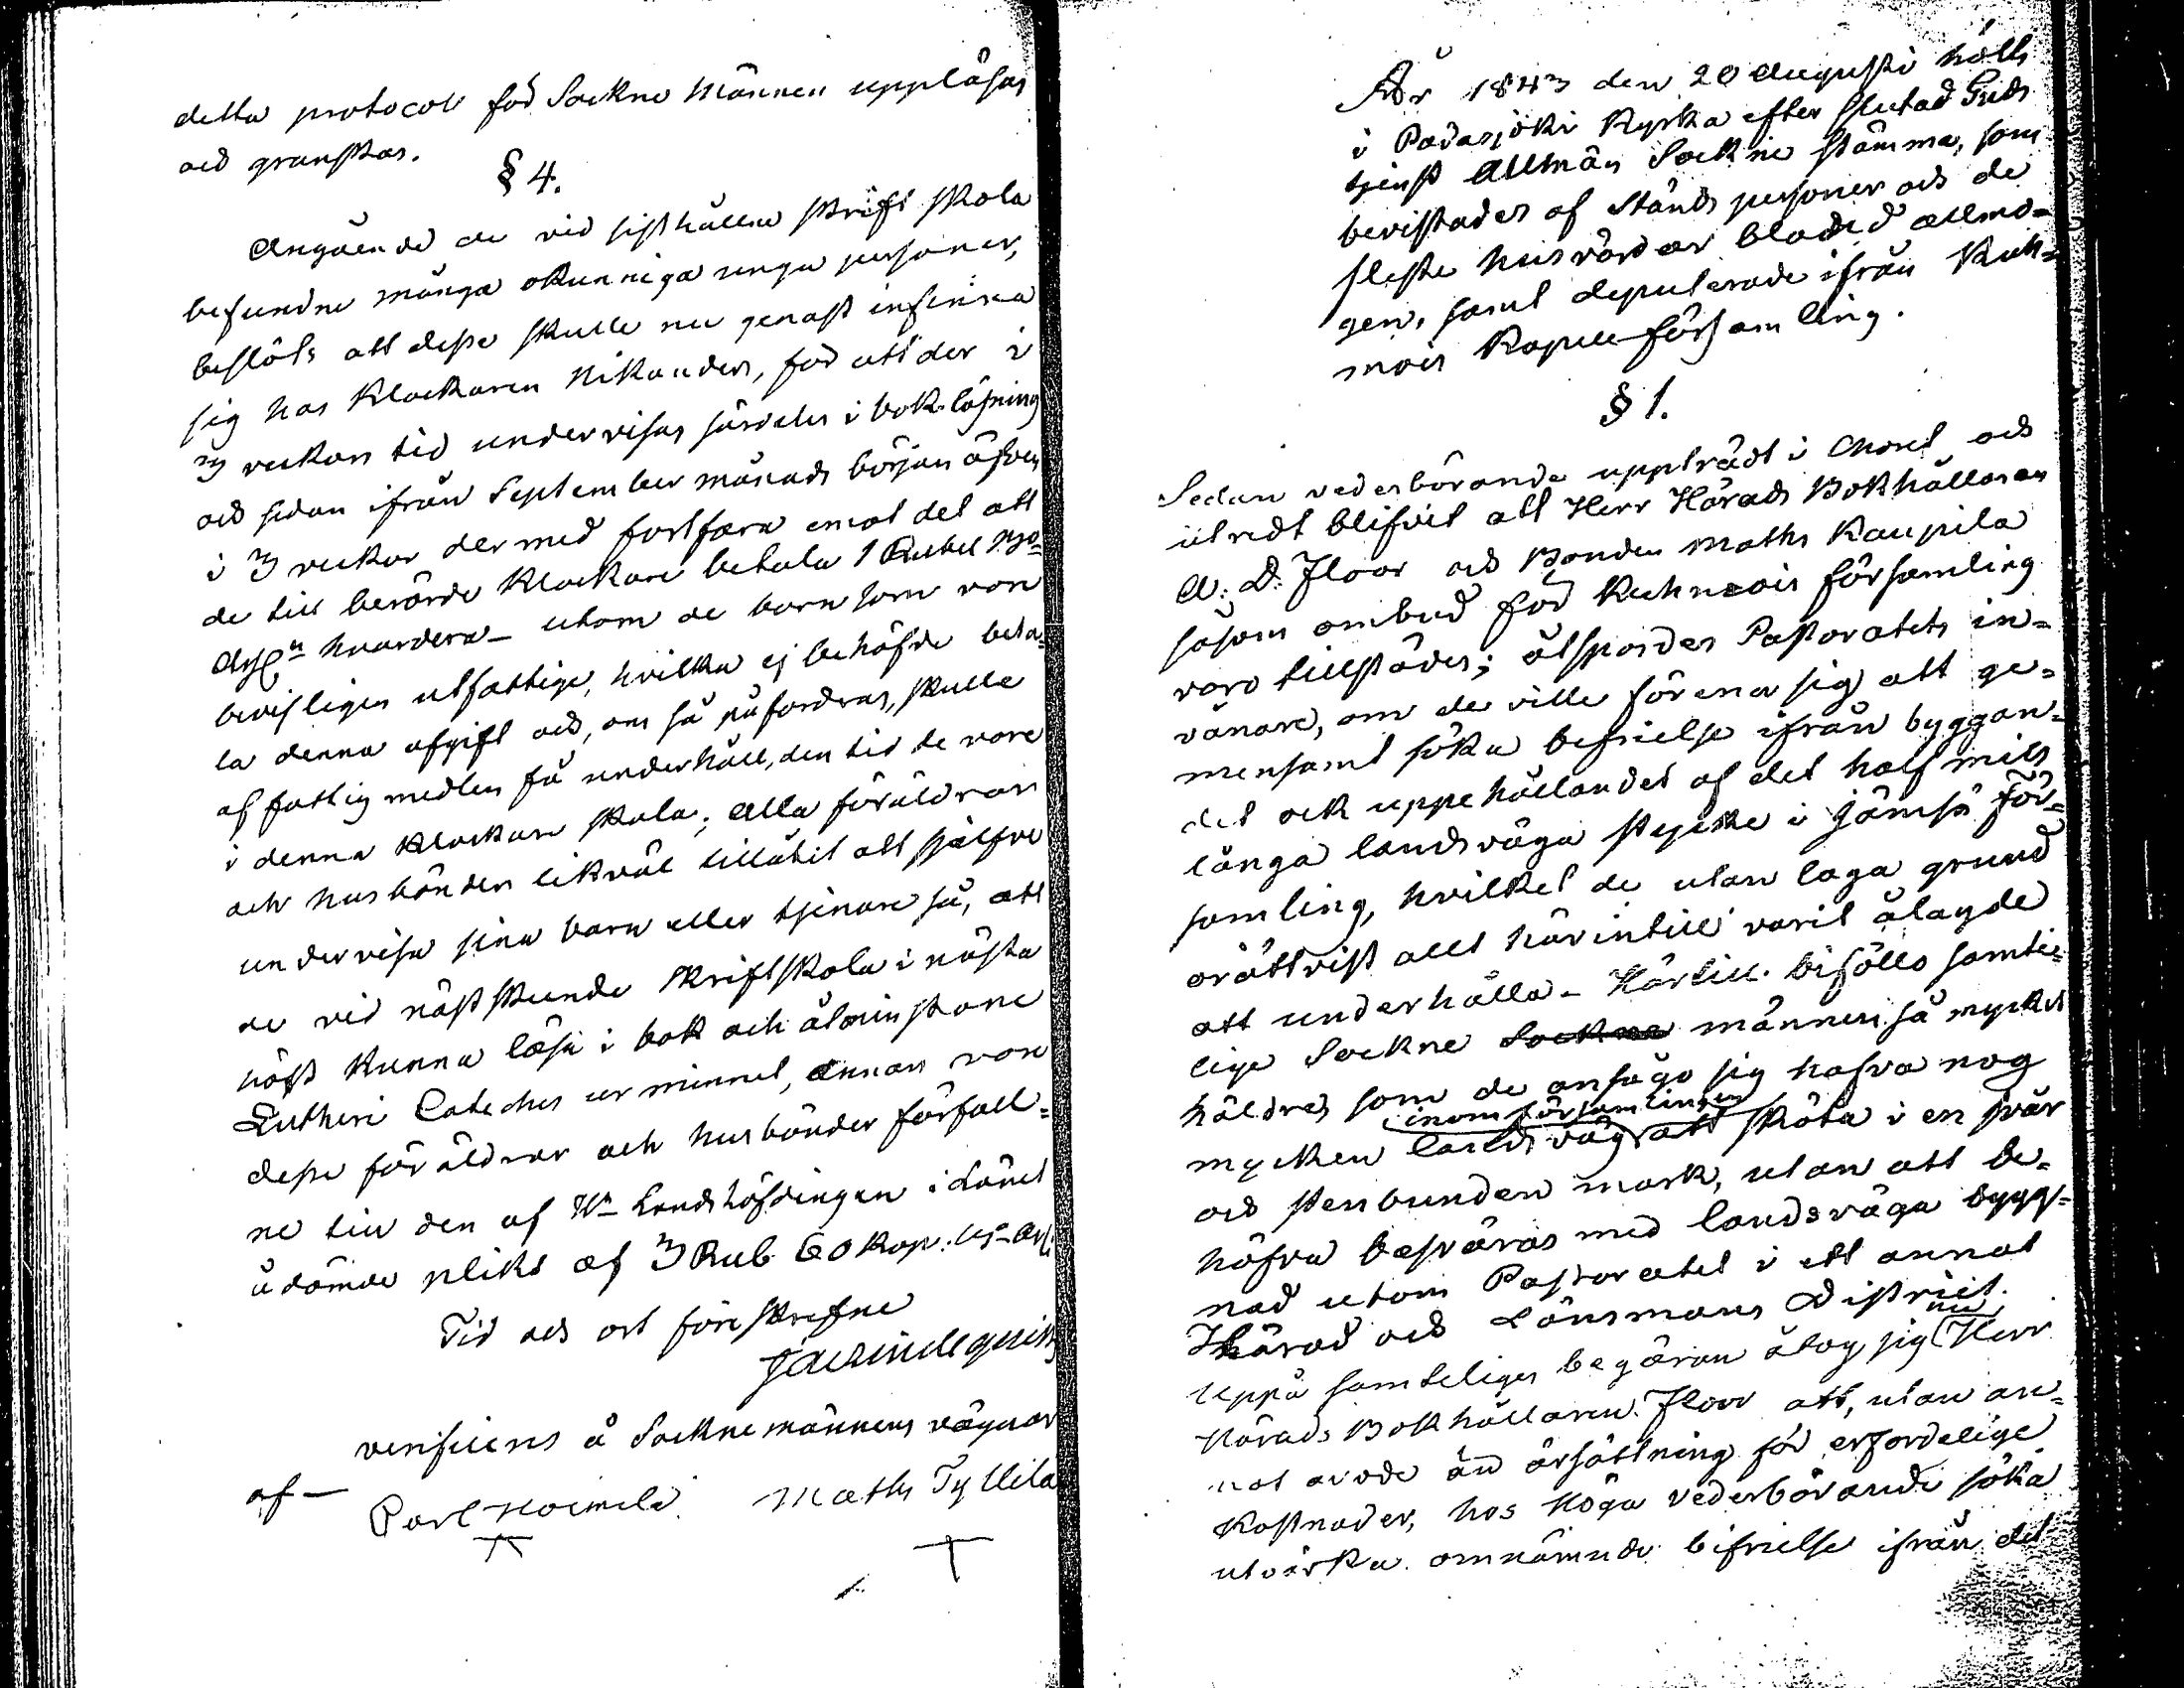 detta protocoll för Sockne Männen uppläsas
och granskas.
§ 4.
Angående de vid sisthållne skrift skola
befundne många okunniga unga personer,
beslöts att desse skulle nu genast infinna
sig hos Klockaren Nikander, för att der i
3 veckors tid undervisas särdeles i bok-läsning
och sedan ifrån September månads början äfven
i 3 veckor dermed fortfara emot det att
de till berörde Klockare betala 1 Rubel Bco
Assn hvardera – utom de barn som voro
bevisligen utfattige, hvilka ej behöfde beta-
la denna afgift och, om så påfordras, skulle
af fattig medlen få underhåll, den tid de vore
i denna Klockare skola; alla föräldrar
och husbönder likväl tillåtit att sjelfve
undervisa sina barn eller tjenare så, att
de vid nästskeende skriftskola i nästa
höst kunna läsa i bok och åtminstone
Lutheri Cateches ur minnet, annars vore
desse föräldrar och husbönder förfall-
ne till den af Hr Landshöfdingen i Länet
ådömde plikt af 3 Rub 60 Kop. Bco Ass:
Tid och ort föreskrefne
verificeras å Sockne männens vägnar
af – Carl Hoimila Maths Tyllilä
År 1843 den 20 Augusti hölls
i Padasjoki Kyrka efter slutad Guds
tjenst Allmän Sockne stämma, som
bevistades af Stånds personer och de
fleste husvärdar bland allmo-
gen, samt deputerade ifrån Kuh-
mois Kapell-församling.
§ 1.
Sedan vederbörande uppträdt i Choret och
utredt blifvit att Herr Härads Bokhållaren
A. D. Floor och Bonden Maths Kaupila
såsom ombud för Kuhmois församling
voro tillstädes; åtspordes Pastoratets in-
vånare, om de ville förena sig att ge-
mensamt söka befrielse ifrån byggan-
det och uppehållandet af det half mils
långa landsväga stycke i Jämsä för-
samling, hvilket de utan laga grund
orättvist allt härintill varit ålagde
att underhålla – Härtill biföllo samte-
lige Sockne Sockne männen så mycket
häldre, som de ansågo sig hafva nog
mycken landsväg inom församlingen att sköta i en svår
och stenbunden mark, utan att be-
höfva besväras med landsväga bygg-
nad utom Pastoratet i ett annat
Härad och Länsmans District.
Uppå samteliges begäran åtog sig nu Herr
Härads Bokhållaren Floor att, utan an-
nat arvode än ersättning för erforderlige
Kostnader, hos Höga vederbörande söka
utvärka omnämnde befrielse ifrån det